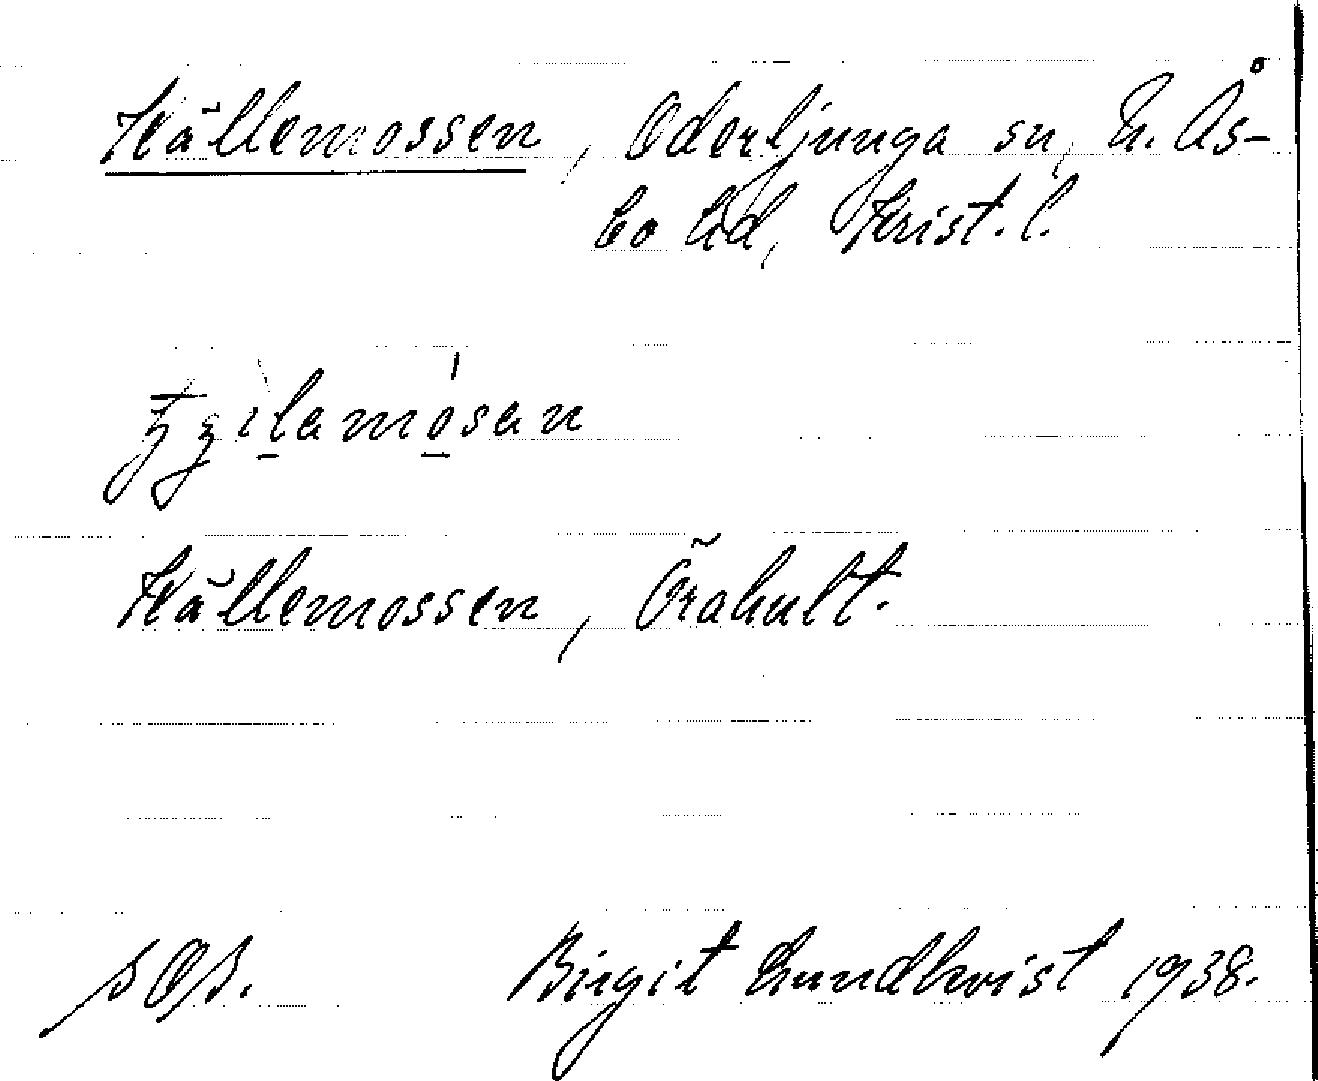 Källemossen, Oderljunga sn, N. Ås-
bo hd, Krist. l.
Källemossen, Örahult.
Birgit Lundkvist 1938.